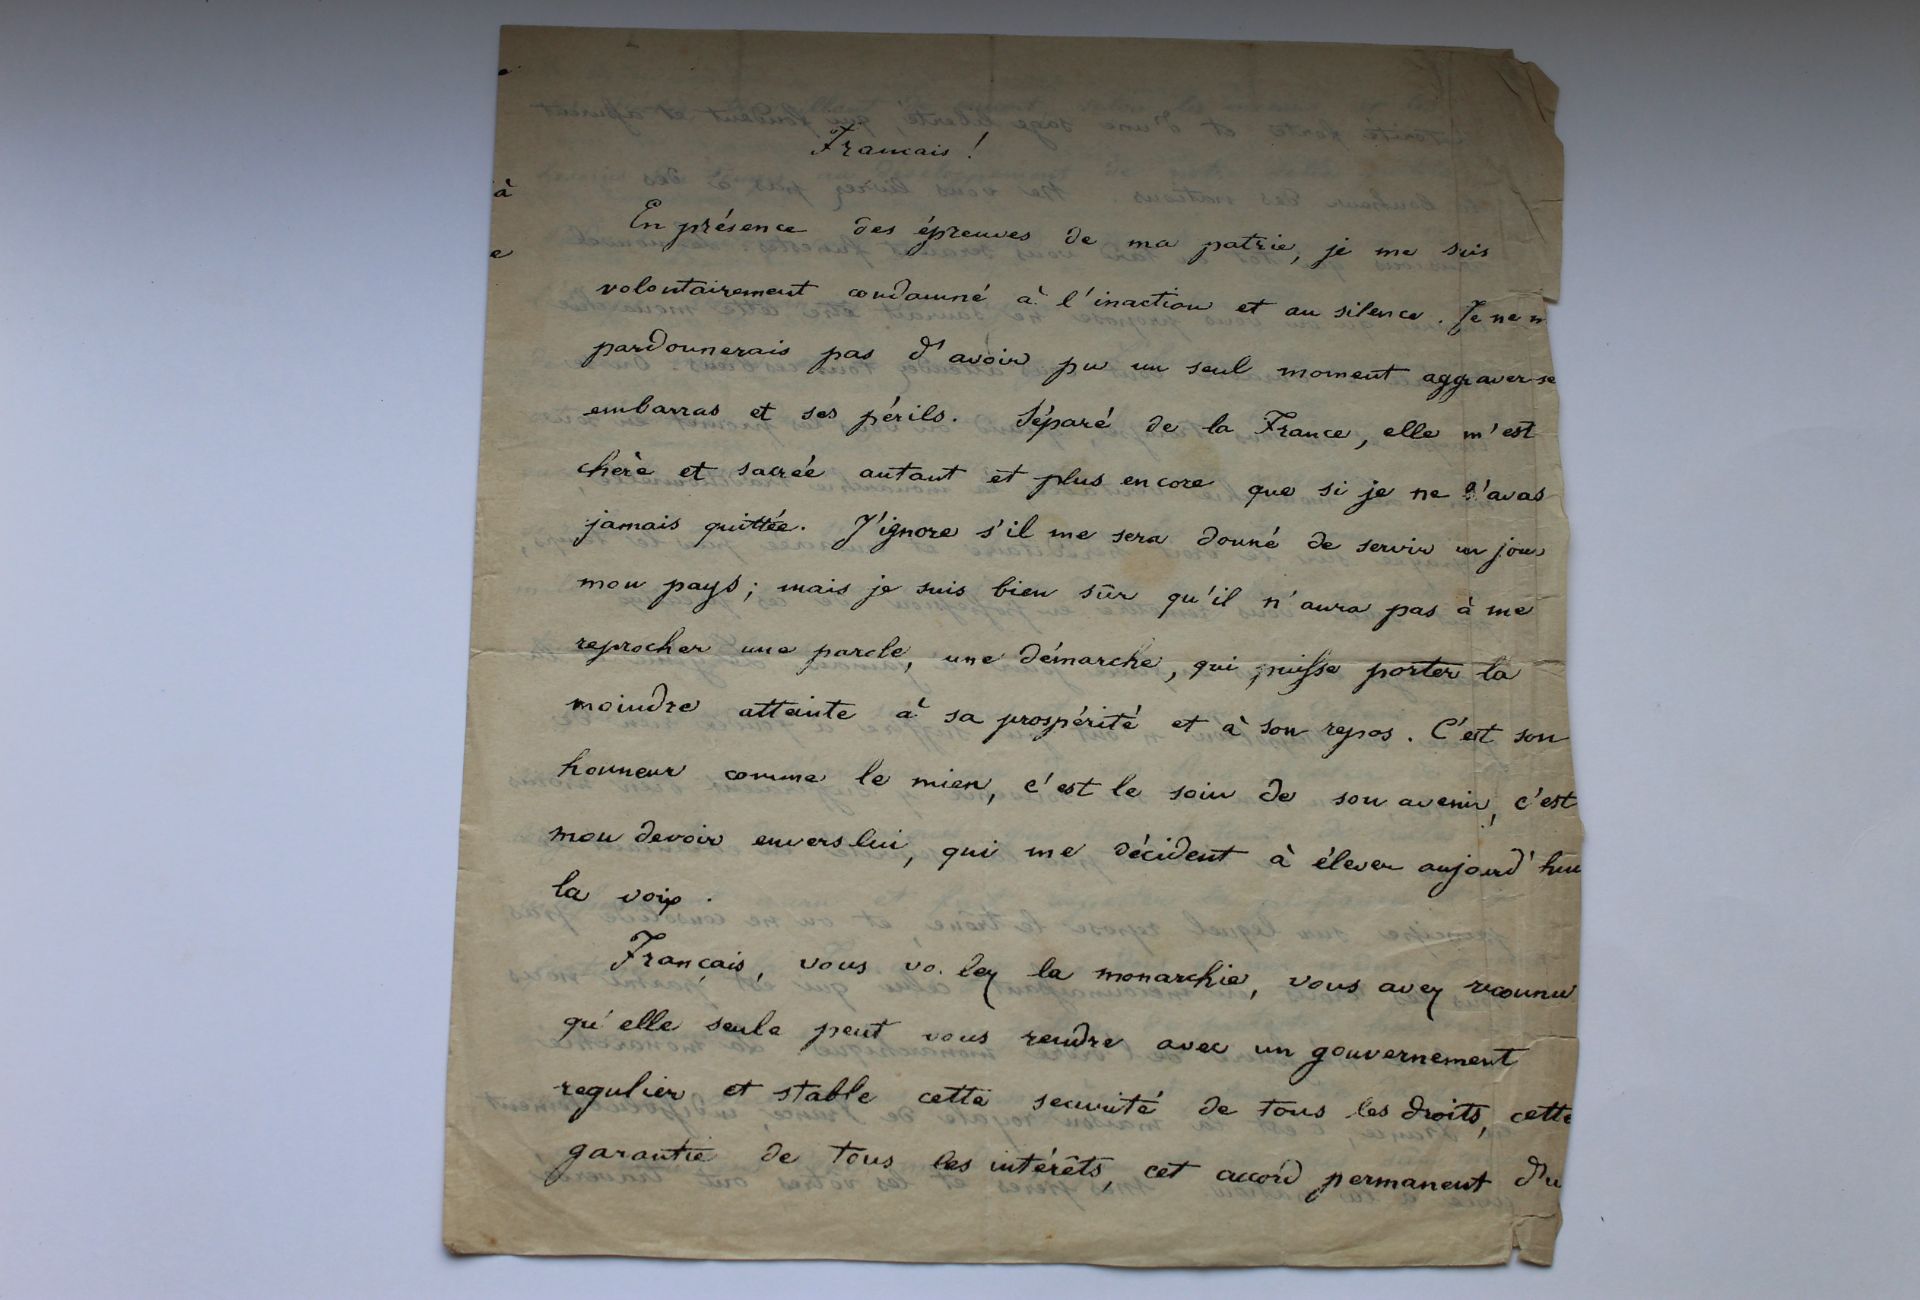 Francais !
En présence des épreuves de ma patrie, je me suis
volontairement condamné à l'inaction et au silence. Je ne m
pardonnerais pas d'avoir pu un seul moment aggraver se
embarras et ses périls. Séparé de la France, elle m'est
chère et sacrée autant et plus encore que si je ne l'avas
jamais quittée. J'ignore s'il me sera donné de servir un jour
mon pays; mais je suis bien sûr qu'il n'aura pas à me
reprocher une parole, une démarche, qui puisse porter la
moindre atteinte à sa prospérité et à son repos. C'est son
honneur comme le mien, c'est le soin de son avenir, c'est
mon devoir envers lui, qui me décident à élever aujourd'hui
la voix.
Français, vous vo.lez la monarchie, vous avez reconnu
qu'elle seule peut vous rendre avec un gouvernement
regulier et stable cette securité de tous les droits, cette
garantie de tous les intérêts, cet accord permanent d'u
à
e